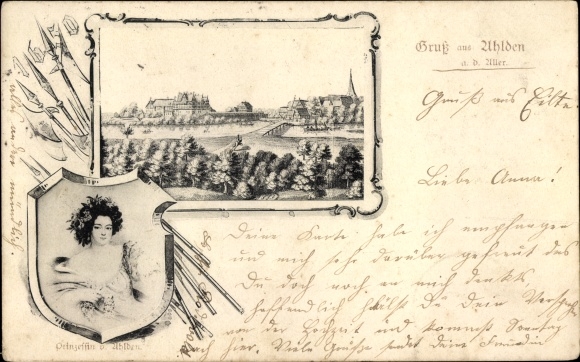 Gruß aus Ahlden
a. d. Aller.
Gruß aus Eilte
Liebe Anna!
Deine Karte habe ich empfangen
und mich sehr darüber gefreut das
Du doch noch an mich denkst,
hoffendlich hältst Du Dein
von der Hochzeit und kommst Sonntag
nach hier. Viele Grüße sendet deine Freundin
Prinzessin v. Ahlden.